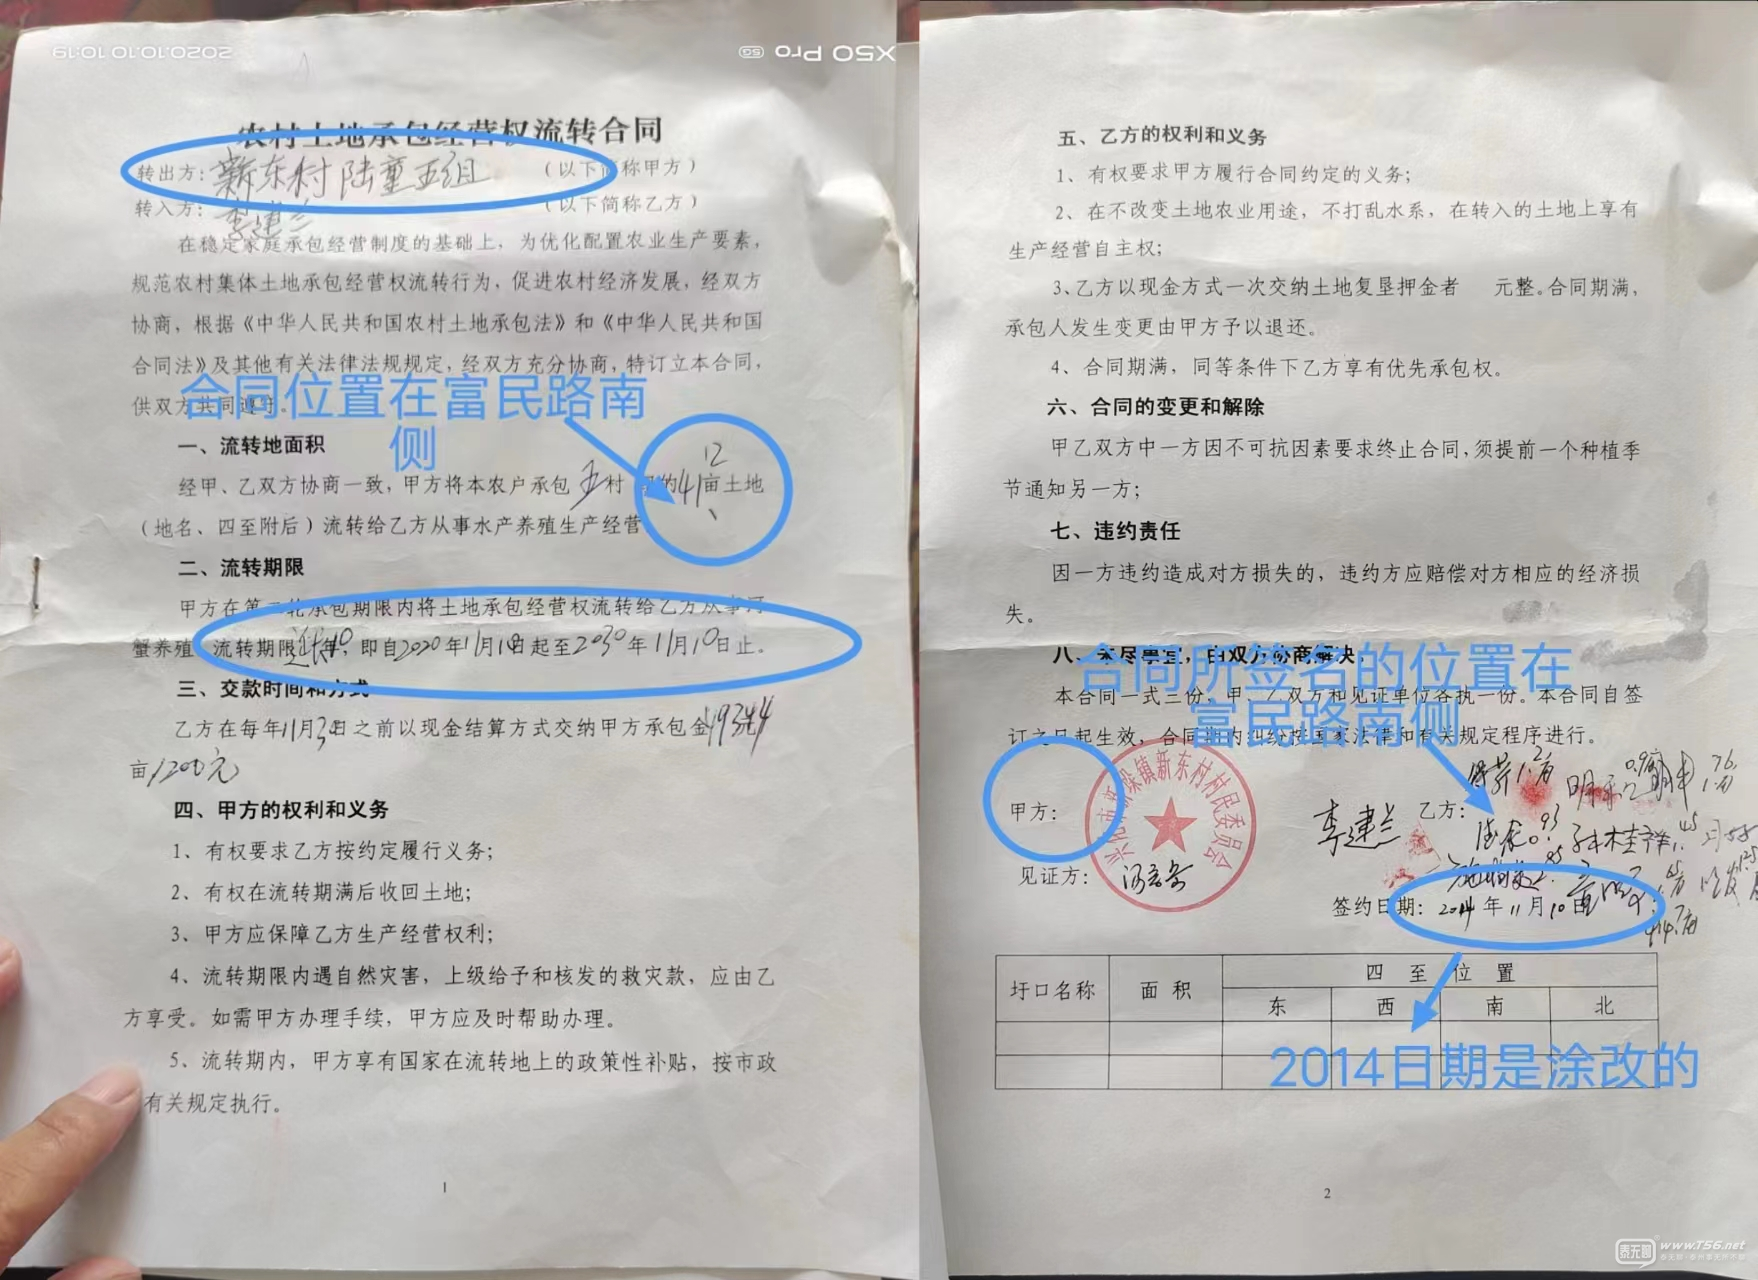 2020.10.10 10:19
X50 Pro 5G
农村土地承包经营权流转合同
转出方：新东村陆童五组 （以下简称甲方）
转入方：李建兰 （以下简称乙方）
在稳定家庭承包经营制度的基础上，为优化配置农业生产要素，
规范农村集体土地承包经营权流转行为，促进农村经济发展，经双方
协商，根据《中华人民共和国农村土地承包法》和《中华人民共和国
合同法》及其他有关法律法规规定，经双方充分协商，特订立本合同，
供双方共同遵守。
合同位置在富民路南
侧
一、流转地面积
12
经甲、乙双方协商一致，甲方将本农户承包五村 的41亩土地
（地名、四至附后）流转给乙方从事水产养殖生产经营
二、流转期限
甲方在第二轮承包期限内将土地承包经营权流转给乙方从事河
蟹养殖 流转期限 10 即自2020年11月10日起至2030年11月10日止。
三、交款时间和方式
乙方在每年11月30日之前以现金结算方式交纳甲方承包金
亩1200元
四、甲方的权利和义务
1、有权要求乙方按约定履行义务；
2、有权在流转期满后收回土地；
3、甲方应保障乙方生产经营权利；
4、流转期限内遇自然灾害，上级给予和核发的救灾款，应由乙
方享受。如需甲方办理手续，甲方应及时帮助办理。
5、流转期内，甲方享有国家在流转地上的政策性补贴，按市政
有关规定执行。
1
五、乙方的权利和义务
1、有权要求甲方履行合同约定的义务；
2、在不改变土地农业用途，不打乱水系，在转入的土地上享有
生产经营自主权；
3、乙方以现金方式一次交纳土地复垦押金者 元整。合同期满，
承包人发生变更由甲方予以退还。
4、合同期满，同等条件下乙方享有优先承包权。
六、合同的变更和解除
甲乙双方中一方因不可抗因素要求终止合同，须提前一个种植季
节通知另一方；
七、违约责任
因一方违约造成对方损失的，违约方应赔偿对方相应的经济损
失。
八、未尽事宜，由双方协商解决。
合同所签名的位置在
富民路南侧
本合同一式三份，甲、乙双方和见证单位各执一份。本合同自签
订之日起生效，合同期内纠纷按国家法律和有关规定程序进行。
甲方：
兴化市 垛镇新东村村民委员会
李建兰
乙方：
见证方：
签约日期：2014年11月10日
圩口名称 面积 四至位置
东 西 南 北
2014日期是涂改的
2
泰无聊 www.T56.net